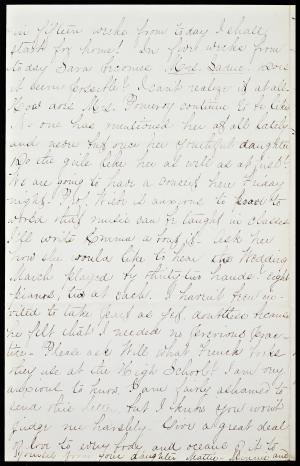 in fifteen weeks from today I shall
start for home! In five weeks from
today Sara becomes Mrs. Does
it seem possible? I can't realize it at all.
How does Mrs. Pomeroy continue to be liked
No one has mentioned her at all lately
and never but once her youthful daughter
Do the girls like her as well as at first?
We are going to have a concert here Friday
night. Prof. is anxious to to
world that music can be taught in classes
I'll write Emma about it. Ask her
how she would like to hear the Wedding
March played by thirty two hands. eight
pianos, two at each. I haven't been in-
vited to take part as yet, doubtless because
he felt that I needed no previous prac-
tice. Please ask Will what French books
they use at the High School? I am very
anxious to know. I am fairly ashamed to
send this letter, but I know you won't
judge me harshly. Give a great deal
of love to every body and oceans of it to
yourself from your daughter Mattie. and